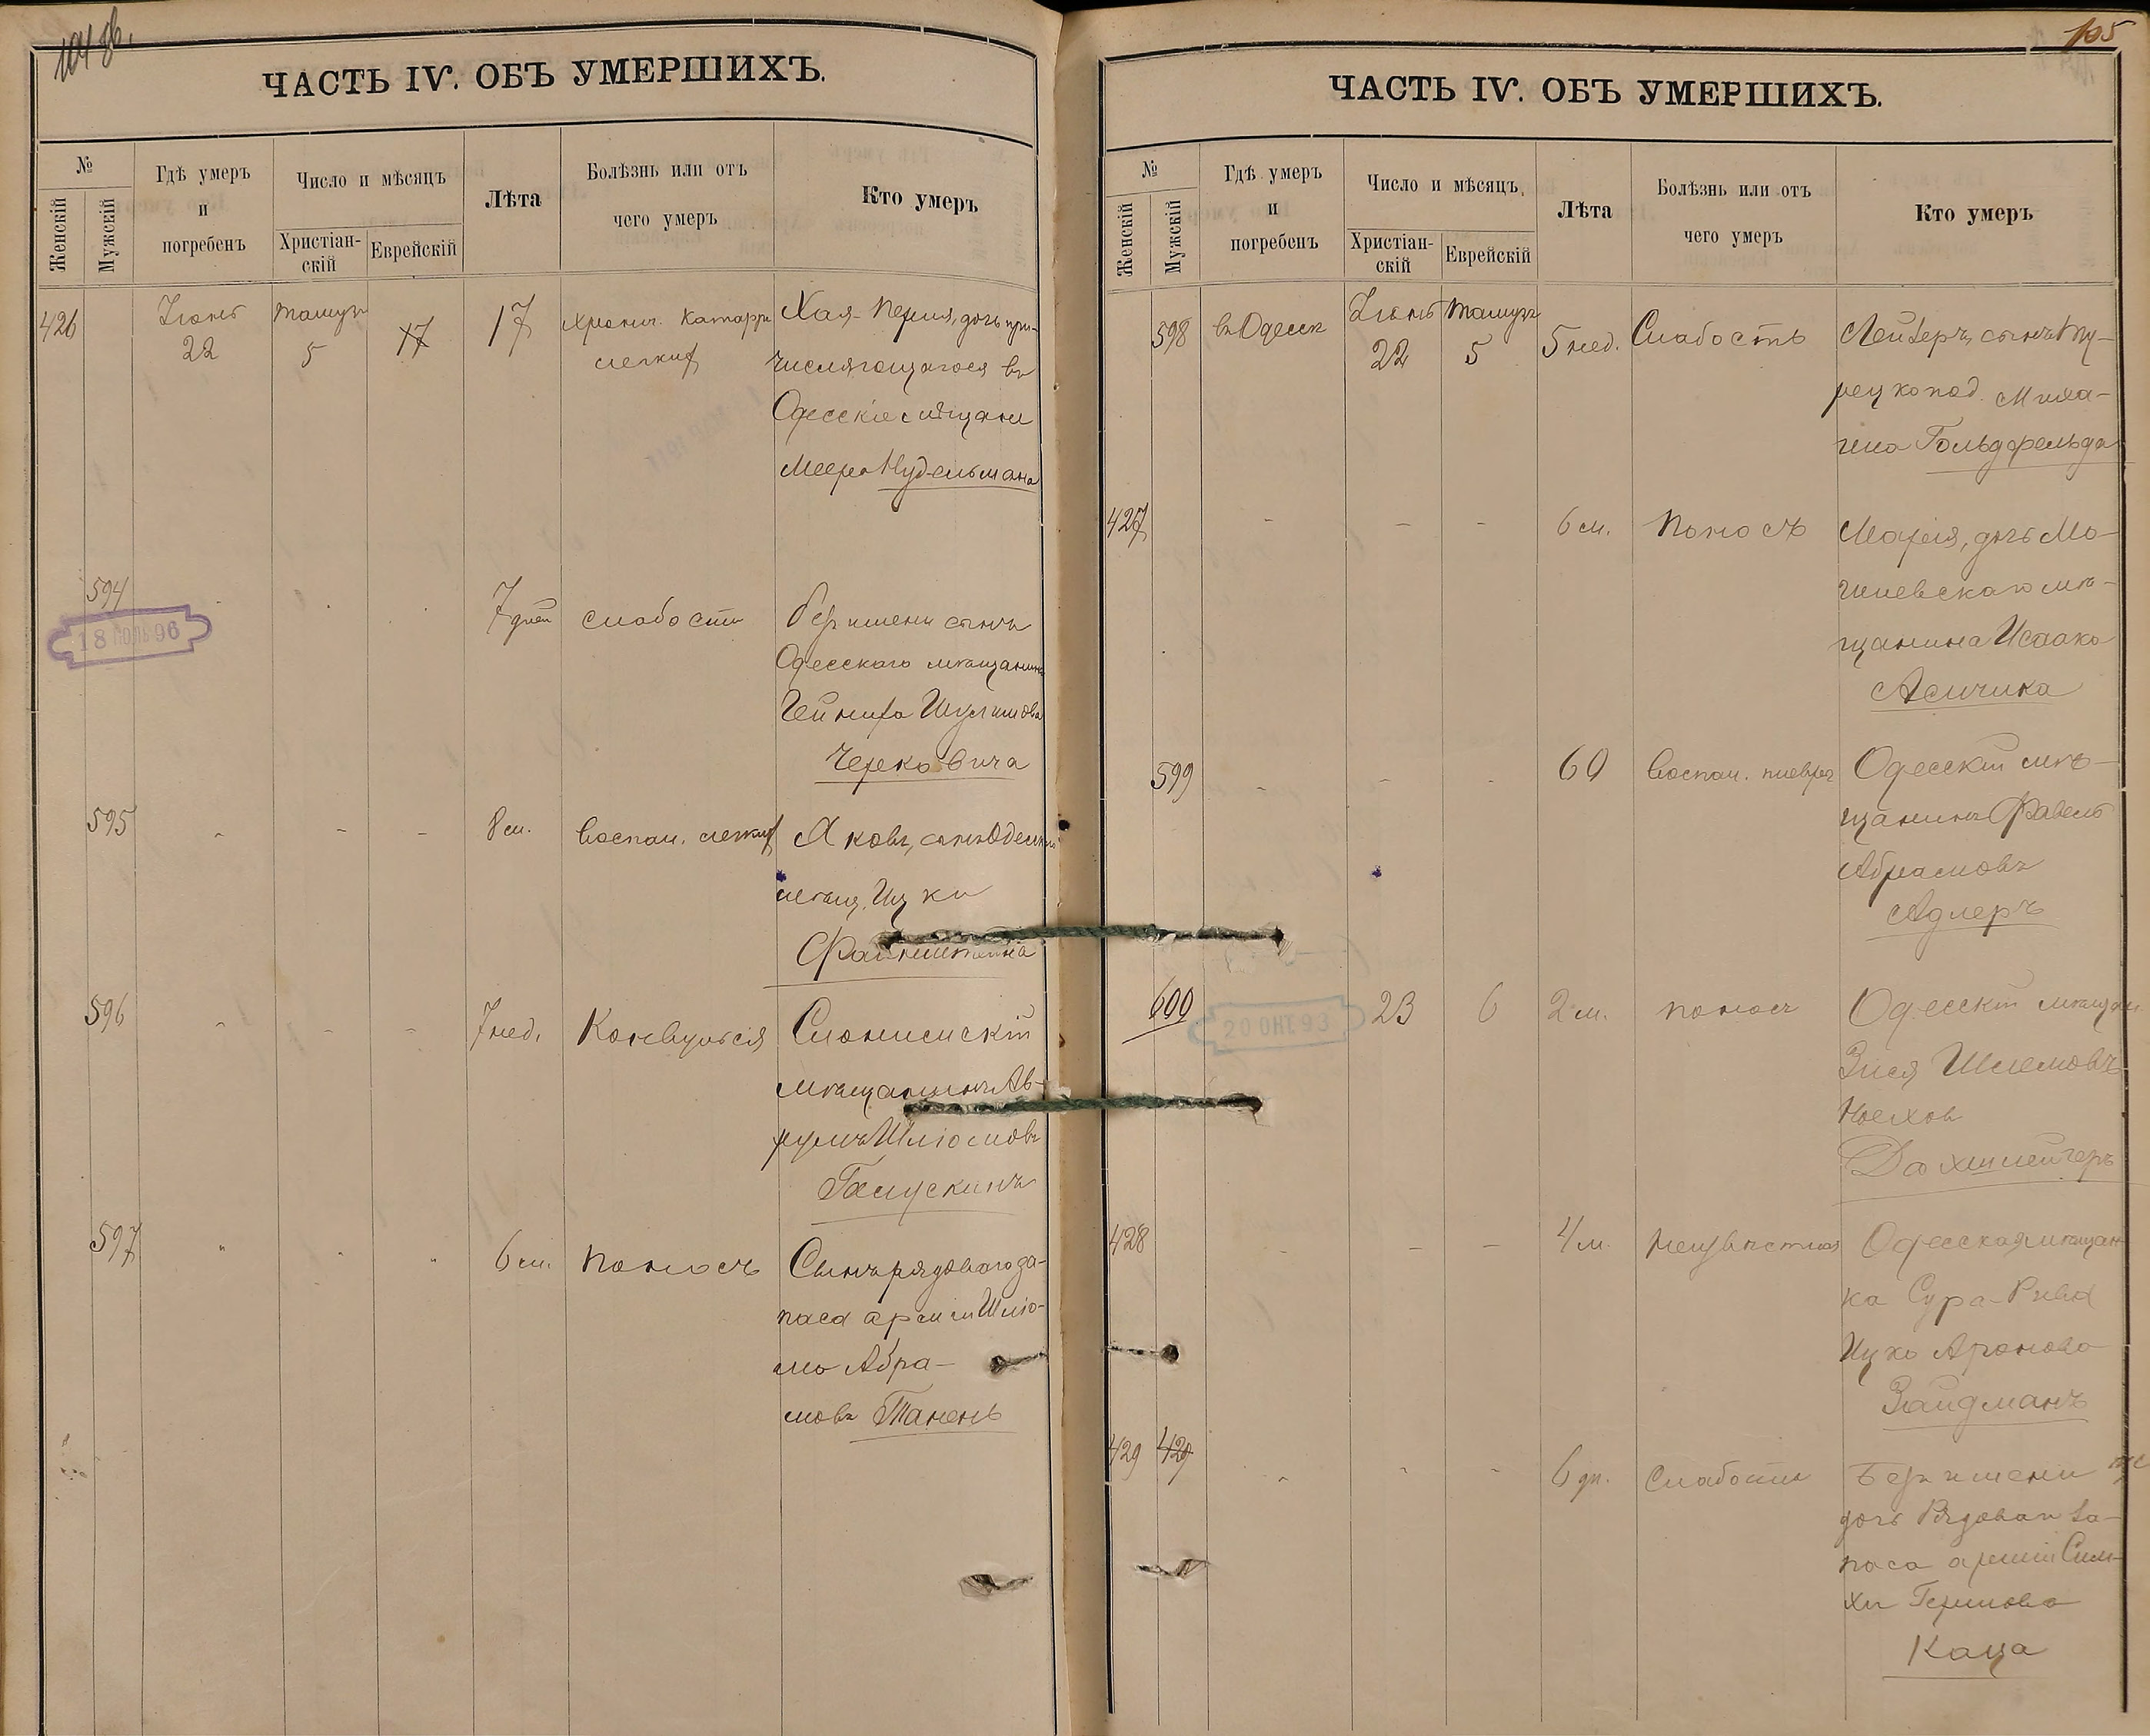 104 об.
ЧАСТЬ IV. ОБЪ УМЕРШИХЪ.
№
Женскій
Мужскій
Гдѣ умеръ
и
погребенъ
Число и мѣсяцъ
Христіан-
скій
Еврейскій
Лѣта
Болѣзнь или отъ
чего умеръ
Кто умеръ
426
Іюнь
22
Тамузъ
5
17
17
Хронич. катарръ
легкихъ
Хая-Перля, дочь при-
числяющагося въ
Одесскіе мѣщане
Меера Нудельмана
594
18 ІЮЛЬ 96
7 дней
слабость
безъ имени сынъ
Одесскаго мѣщанина
Черековича
595
8 м.
воспал. легкихъ
Яковъ, сынъ Одесск.
мѣщ. Ицки
Файнштейна
596
7 нед.
Конвульсія
Слонимскій
мѣщанинъ Ав-
румъ Шлiомовъ
Галускинъ
597
6 м.
Поносъ
Сынъ рядового за-
паса арміи Шліо-
мы Абра-
мовъ Таненъ
105
ЧАСТЬ IV. ОБЪ УМЕРШИХЪ.
№
Женскій
Мужскій
Гдѣ умеръ
и
погребенъ
Число и мѣсяцъ
Христіан-
скій
Еврейскій
Лѣта
Болѣзнь или отъ
чего умеръ
Кто умеръ
598
въ Одессѣ
Іюнь
22
Тамузъ
5
5 нед.
Слабость
Лейзеръ, сынъ Ту-
рецко под. Миха-
Гольдфельда
427
6 м.
Поносъ
Марія, дочь Мо-
гилевскаго мѣ-
щанина Исаака
Асичика
599
60
воспал. плевры
Одесскій мѣ-
щанинъ Фавель
Абрамовъ
Адлеръ
600
20 ОКТ. 93
23
6
2 м.
поносъ
Одесскій мѣщан.
Зися Шлемовъ
Дахшлейгеръ
428
4 м.
неизвѣстная
Одесская мѣщан-
ка Сура-Рива
Ицко Аронова
Зайдманъ
429
429
6 дн.
Слабость
Безъ имени
дочь Рядован за-
паса арміи Сим-
хи Гершова
Каца